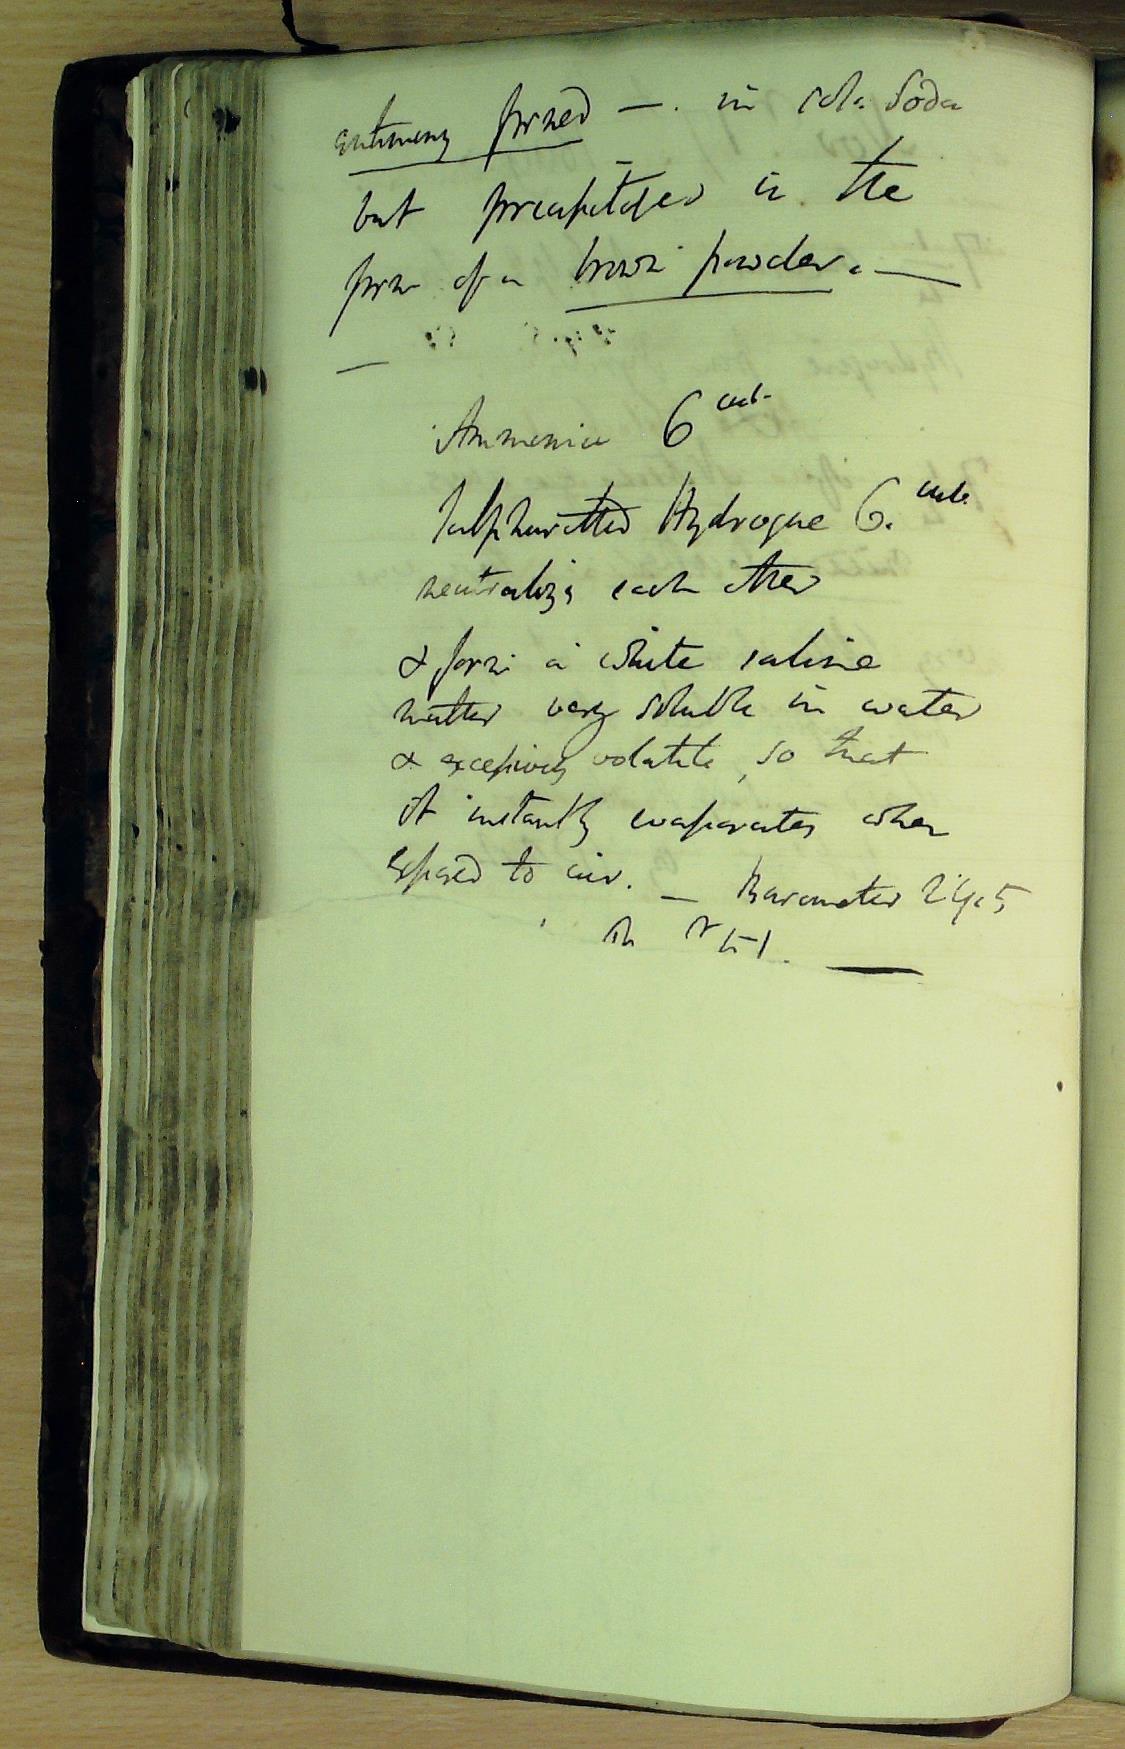 antimony formed —. in sol. Soda
but precipitated in the
form of a brown powder. —
—
Ammonia 6 cub.
Sulphuretted Hydrogene 6. cub.
neutralizes each other
& form a white saline
matter very soluble in water
& excessively volatile, so that
it instantly evaporates when
exposed to air. — Barometer 29.5
Th 51. —